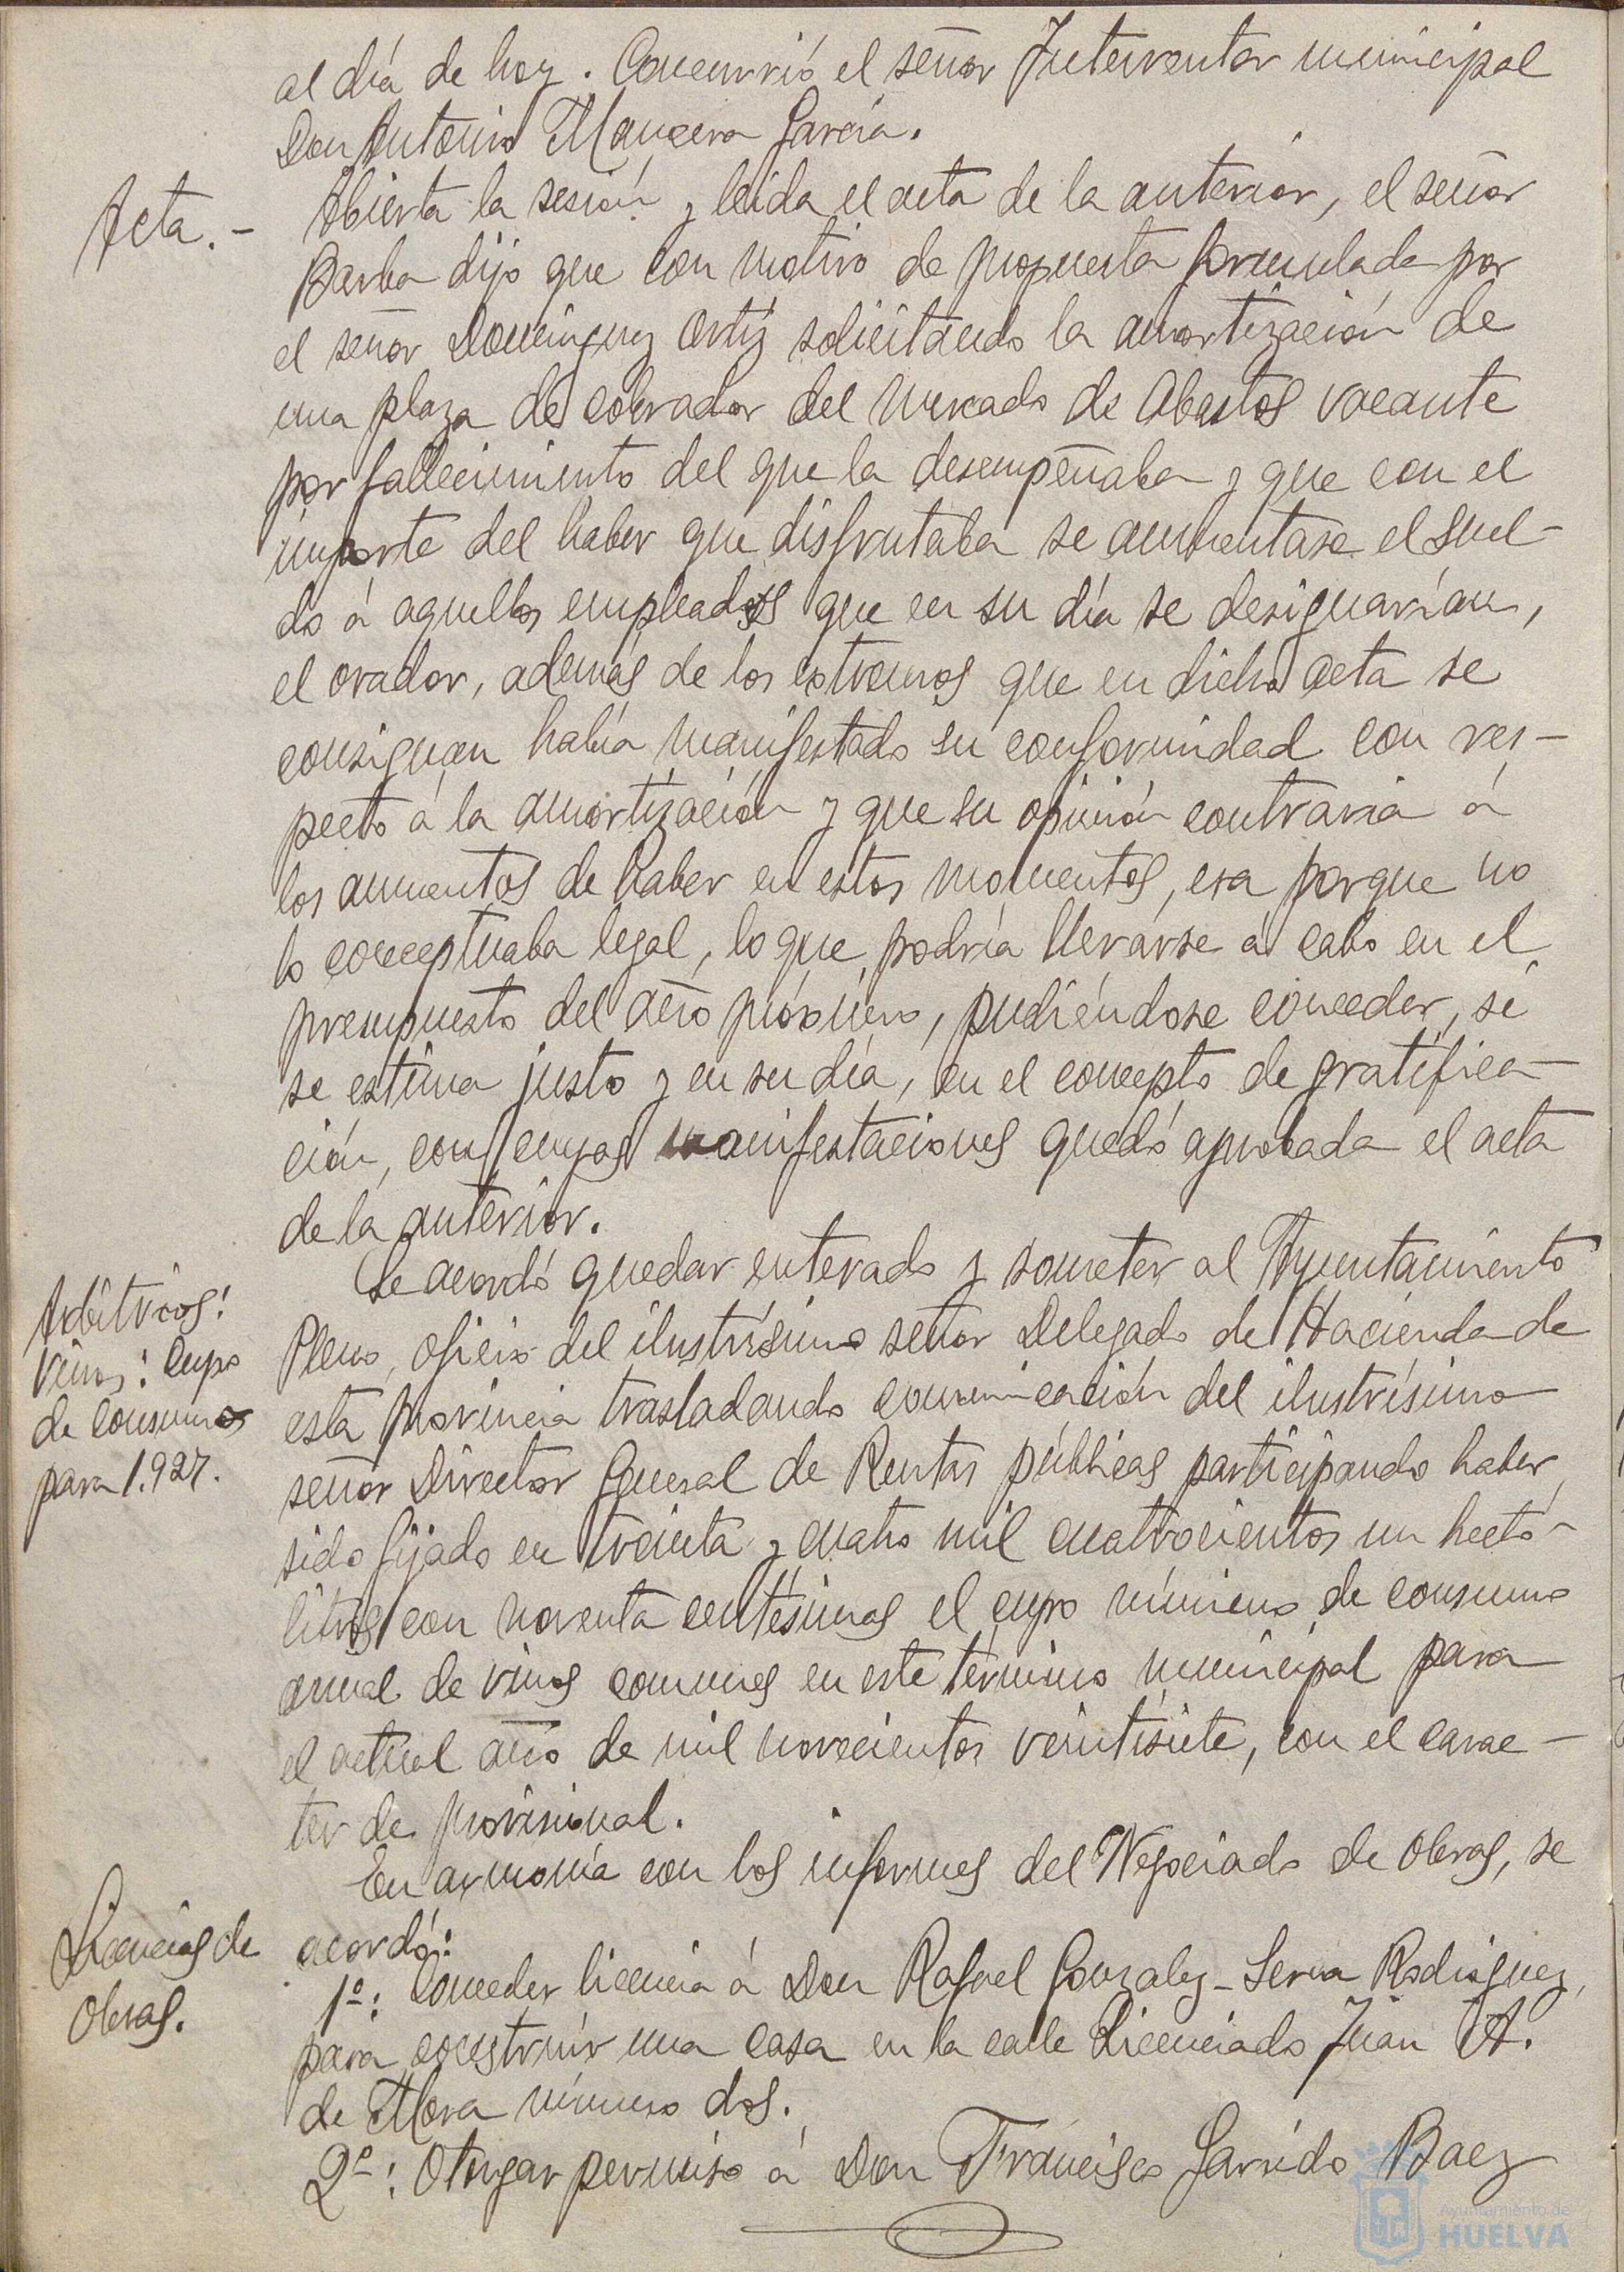 al día de hoy. Concurrió el señor Interventor municipal
Don Antonio Mancera García.
Acta.- Abierta la sesión y leida el acta de la anterior, el señor
Barba dijo que con motivo de propuesta formulada por
el señor Dominguez Ortiz solicitando la amortización de
una plaza de cobrador del Mercado de Abastos vacante
por fallecimiento del que la desempeñaba y que con el
importe del haber que disfrutaba se aumentase el suel-
do á aquellos empleados que en su día se designarían,
el orador, además de los extremos que en dicha acta se
consignan había manifestado su conformidad con res-
pecto á la amortización y que su opinión contraria á
los aumentos de haber en estos momentos, era porque no
lo conceptuaba legal, lo que podría llevárse á cabo en el
presupuesto del año próximo, pudiéndose conceder, si
se estima justo y en su día, en el concepto de gratifica-
ción, con cuyas manifestaciones quedó aprobada el acta
de la anterior.
Arbitrios:
Vinos: Cupo
de consumos
para 1.927.
Se acordó quedar enterado y someter al Ayuntamiento
Pleno, oficio del ilustrísimo señor Delegado de Hacienda de
esta provincia trasladando comunicación del ilustrísimo
señor Director General de Rentas públicas participando haber
sido fijado en treinta y cuatro mil cuatrocientos un hectó-
litros con noventa centésimas el cupo mínimo de consumo
anual de vinos comunes en este término municipal para
el actual año de mil novecientos veintisiete, con el carac-
ter de provisional.
Licencias de
Obras.
En armonía con los informes del Negociado de Obras, se
acordó:
1º: Conceder licencia á Don Rafael Gonzalez-Serna Rodriguez,
para construir una casa en la calle Licenciado Juan A.
de Mora número dos.
2º: Otorgar permiso á Don Francisco Garrido Baez
Ayuntamiento de
HUELVA